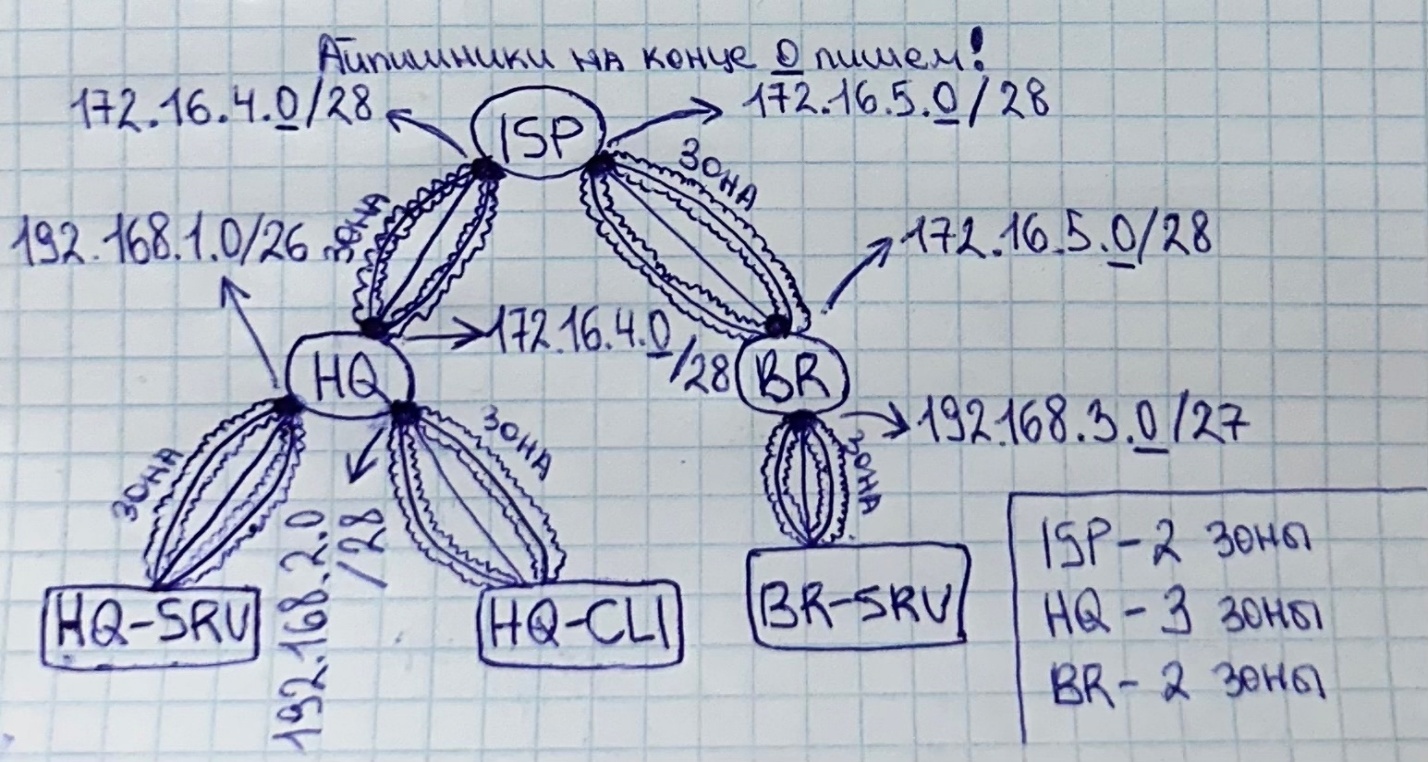 Айпишники на конце 0 пишем!
172.16.4.0/28
ISP
172.16.5.0/28
ЗОНА
ЗОНА
192.168.1.0/26
172.16.5.0/28
172.16.4.0/28
HQ
BR
192.168.3.0/27
ЗОНА
ЗОНА
ЗОНА
192.168.2.0/28
HQ-SRV
HQ-CLI
BR-SRV
ISP-2 зоны
HQ-3 зоны
BR-2 зоны